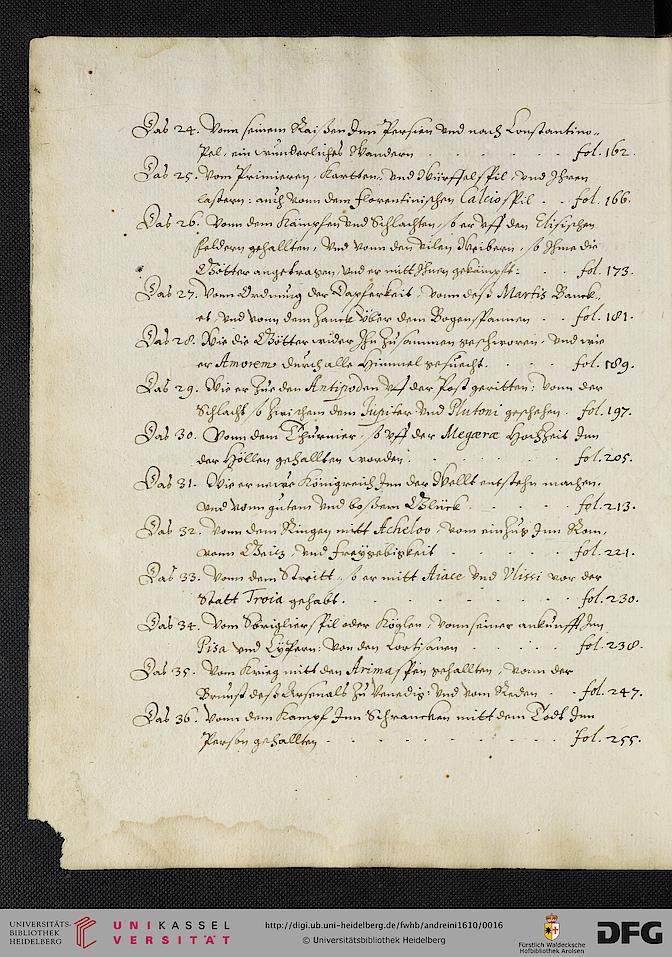 Das 24. Vonn seinem Raißen Inn Persien vnd nach Constantino-
pel, ein wunderliches Wandern . . . . . fol. 162.
Das 25. Vom Primieren, Kartten, vnd Würffelspil, vnd Ihren
lastern: auch vonn dem florentinischen Calciospil . . fol. 166.
Das 26. Vonn dem Kämpfen vnd Schlachten, so er vff den Elisischen
feldern gehallten, Vnd vonn den vilen Weibern, so Ihme die
Götter angetragen, vnd er mitt Ihnen gekämpft: . . fol. 173.
Das 27. Vonn Ordnung der Dapferkeit, vonn deß Martis Banck-
et, vnd vonn dem Zanck vber dem Bogenspannen . . fol. 181.
Das 28. Wie die Götter wider Ihn zusammen geschworen, vnd wie
er Amorem durch alle Himmel gesuecht. . . . fol. 189.
Das 29. Wie er zue den Antipoden vff der Post geritten: vonn der
Schlacht so zwischem dem Jupiter vnd Plutoni geschehen . fol. 197.
Das 30. Vonn dem Thurnier, so vff der Megæræ Hochzeit Inn
der Höllen gehallten worden. . . . . . fol. 205.
Das 31. Wie er newe Königreich Inn der Wellt entstehn machen,
vnd vonn gutem vnd boßem Glück . . . . . fol. 213.
Das 32. Vonn dem Ringen mitt Acheloo, vom einzug Inn Rom,
vonn Geitz, vnd freygebigkeit . . . . . fol. 221.
Das 33. Vonn dem Streitt, so er mitt Aiace vnd Vlissi vor der
Statt Troia gehabt. . . . . . . fol. 230.
Das 34. Vom Sbriglierspil oder Köglen, vonn seiner ankunfft Inn
Pisa vnd Cÿpern: Von den Cortisanen . . . . . fol. 238.
Das 35. Vom Krieg mitt den Arimaspen gehallten, vonn der
Brunst deß Arsenals zu Venedig: Vnd vom Reden . . fol. 247.
Das 36. Vonn dem Kampf Inn Schrancken mitt dem Todt Inn
Person gehallten . . . . . . . . fol. 255.
UNIVERSITÄTS-
BIBLIOTHEK
HEIDELBERG
UNIKASSEL
VERSITÄT
http://digi.ub.uni-heidelberg.de/fwhb/andreini1610/0016
© Universitätsbibliothek Heidelberg
Fürstlich Waldecksche
Hofbibliothek Arolsen
DFG